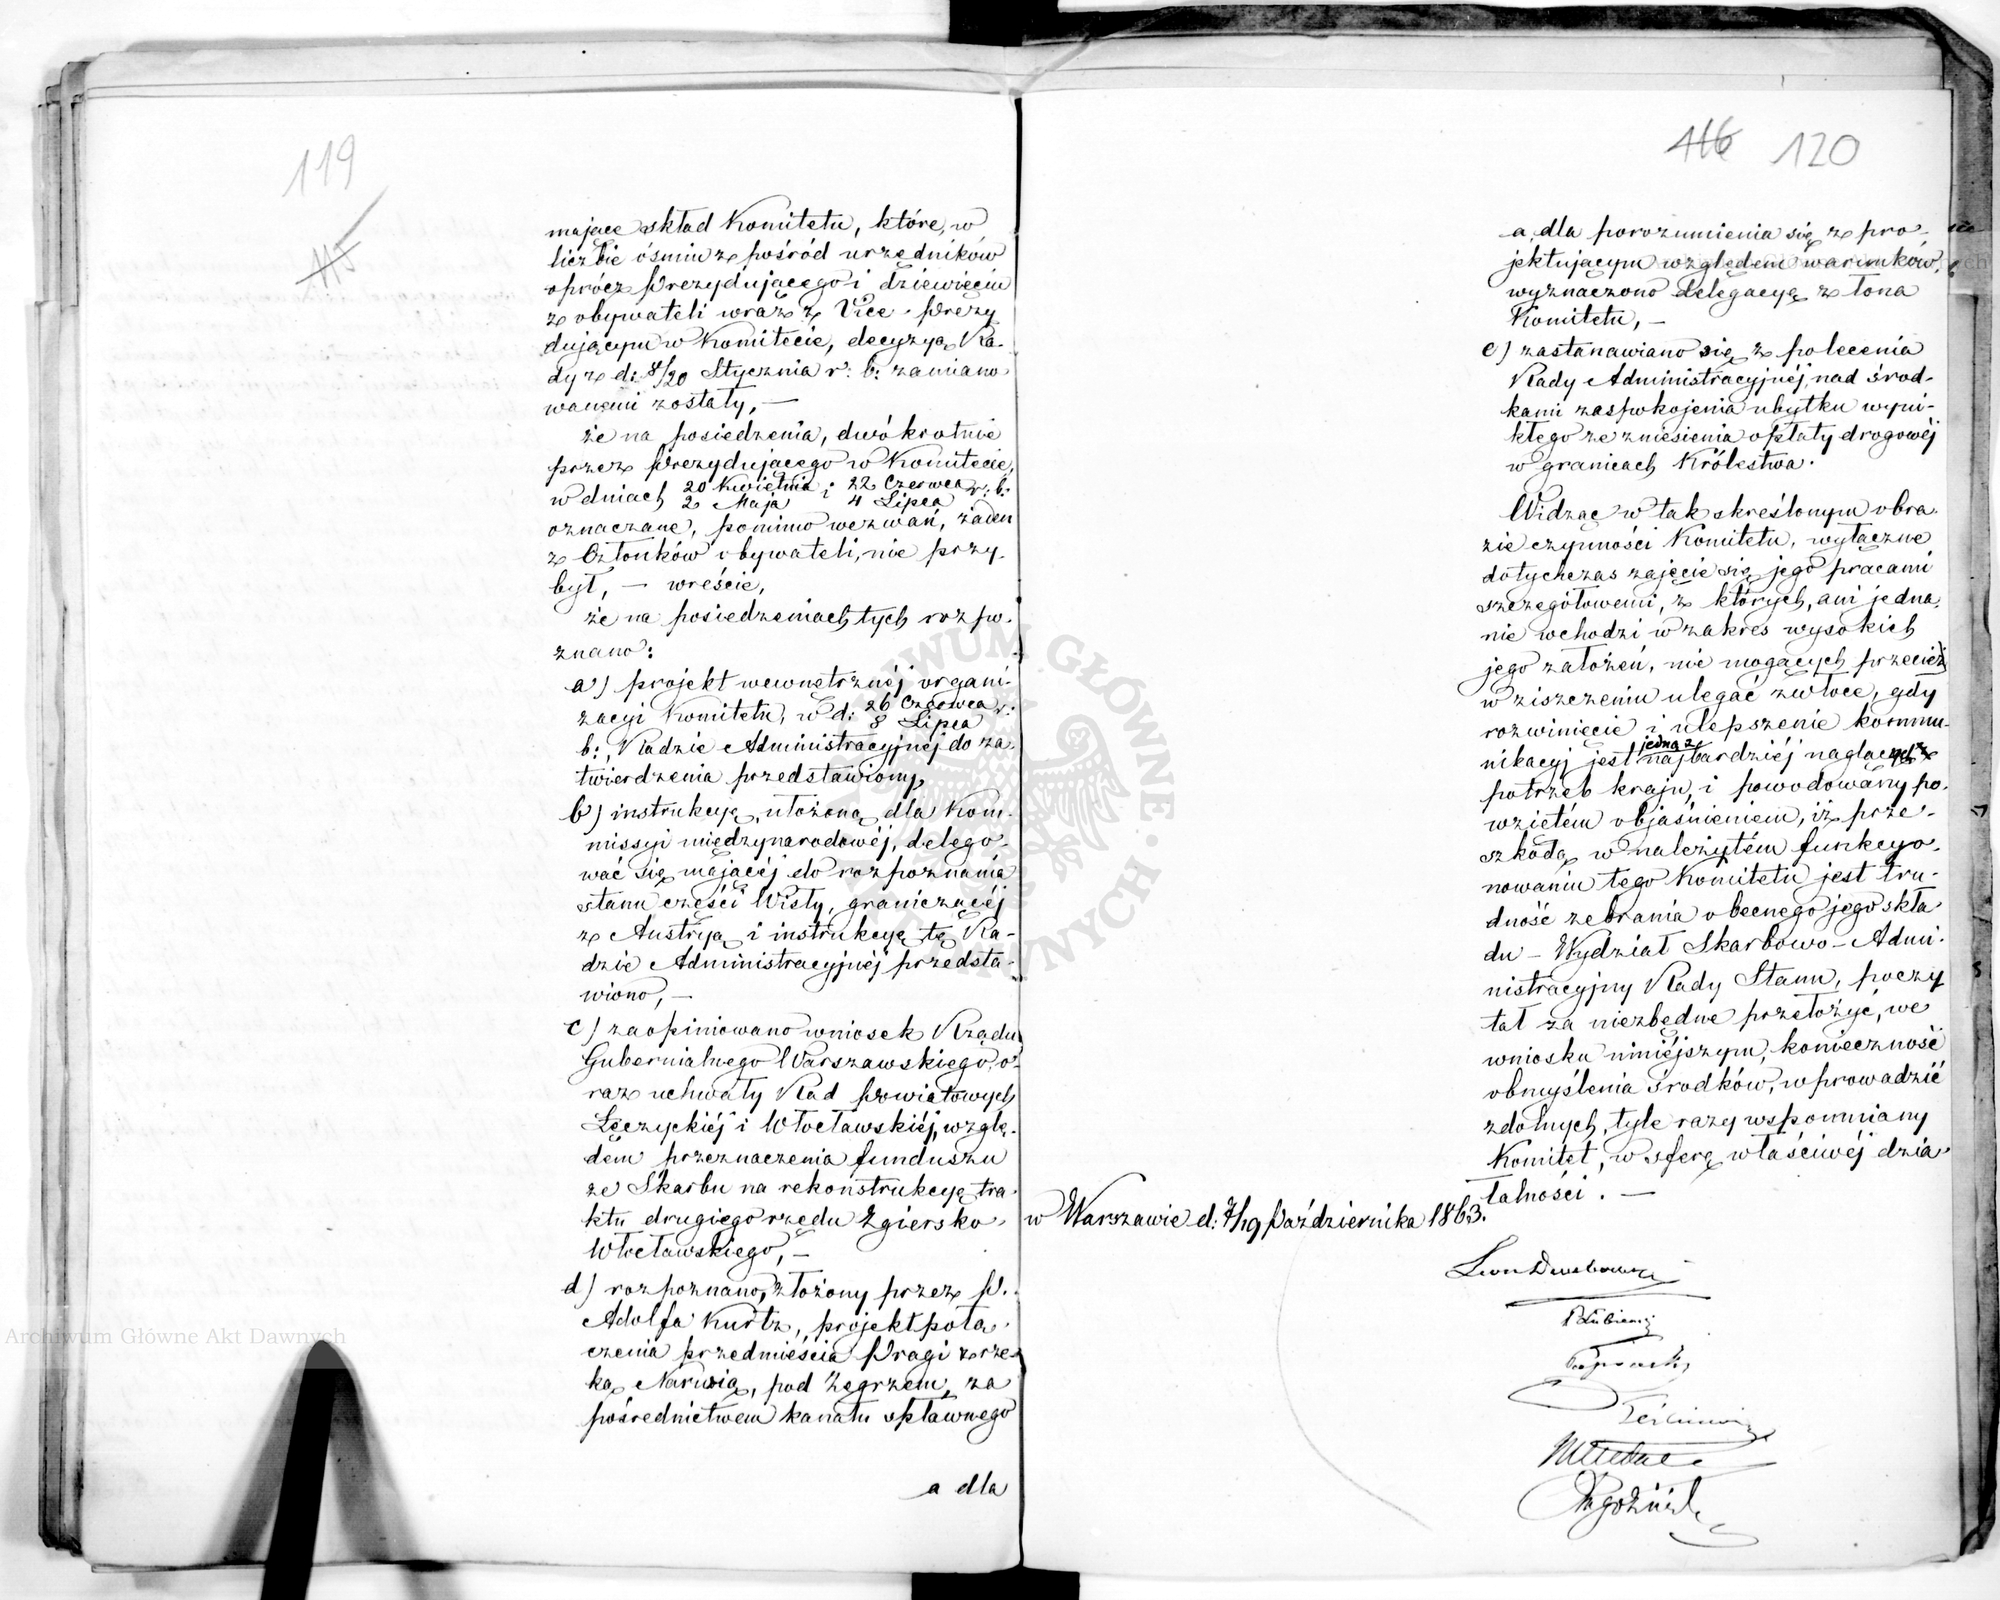 119
115
mające skład Komitetu, które, w
liczbie óśmiu z pośród urzędników
oprócz Prezydującego i dziewięciu
z obywateli wraz z Vice-Prezy
dującym w Komitecie, decyzyą Ra-
dy z d: 8/20 Stycznia r: b: zamiano-
wanemi zostały, —
że na posiedzenia, dwókrotnie
przez Prezydującego w Komitecie,
w dniach 20 Kwietnia / 2 Maja i 22 Czerwca / 4 Lipca r: b:
oznaczane, pomimo wezwań, żaden
z Członków obywateli, nie przy-
był, — wreście,
że na posiedzeniach tych rozpo-
znano:
a) projekt wewnętrznéj organi-
zacyi Komitetu, w d: 26 Czerwca / 8 Lipca r:
b:, Radzie Administracyjnéj do za-
twierdzenia przedstawiony,
b) instrukcyą, ułożoną dla Kom-
missyi międzynarodowéj, delego-
wać się mającéj do rozpoznania
stanu części Wisły, graniczącéj
z Austryą i instrukcyę tę Ra-
dzie Administracyjnéj przedsta-
wiono, —
c) zaopiniowano wniosek Rządu
Gubernialnego Warszawskiego, o-
raz uchwały Rad Powiatowych
Łęczyckiéj i Włocławskiéj, wzglę-
dem przeznaczenia funduszu
ze Skarbu na rekonstrukcyę tra-
ktu drugiego rzędu Zgiersko-
Włocławskiego, —
d) rozpoznano, złożony przez P.
Adolfa Kurtz, projekt połą-
czenia przedmieścia Pragi z rze-
ką Narwią, pod Zegrzem, za
pośrednictwem kanału spławnego
a dla
116 120
a dla porozumienia się z pro-
jektującym względem warunków,
wyznaczono delegacyę z łona
Komitetu, —
e) zastanawiano się z polecenia
Rady Administracyjnéj, nad środ-
kami zaspokojenia ubytku wyni-
kłego ze zniesienia opłaty drogowéj
w granicach Królestwa.
Widząc w tak skreślonym obra-
zie czynności Komitetu, wyłączne
dotychczas zajęcie się jego pracami
szczegółowemi, z których, ani jedna,
nie wchodzi w zakres wysokich
jego założeń, nie mogących przecież
w ziszczeniu ulegać zwłoce, gdy
rozwinięcie i ulepszenie kommu-
nikacyj jest jedną z najbardziéj naglących
potrzeb kraju, i powodowany po-
wziętém objaśnieniem, iż prze-
szkodą w należytém funkcyo-
nowaniu tego Komitetu jest tru-
dność zebrania obecnego jego skła-
du — Wydział Skarbowo-Admi-
nistracyjny Rady Stanu, poczy
tał za niezbędne przełożyć, we
wniosku niniéjszym, konieczność
obmyślenia środków, wprowadzić
zdolnych, tyle razy wspomniany
Komitet, w sferę właściwéj dzia-
łalności. —
w Warszawie d: 7/19 Października 1863.
Leon Dembowski
P Łubieński
Archiwum Główne Akt Dawnych
ARCHIWUM GŁÓWNE AKT DAWNYCH